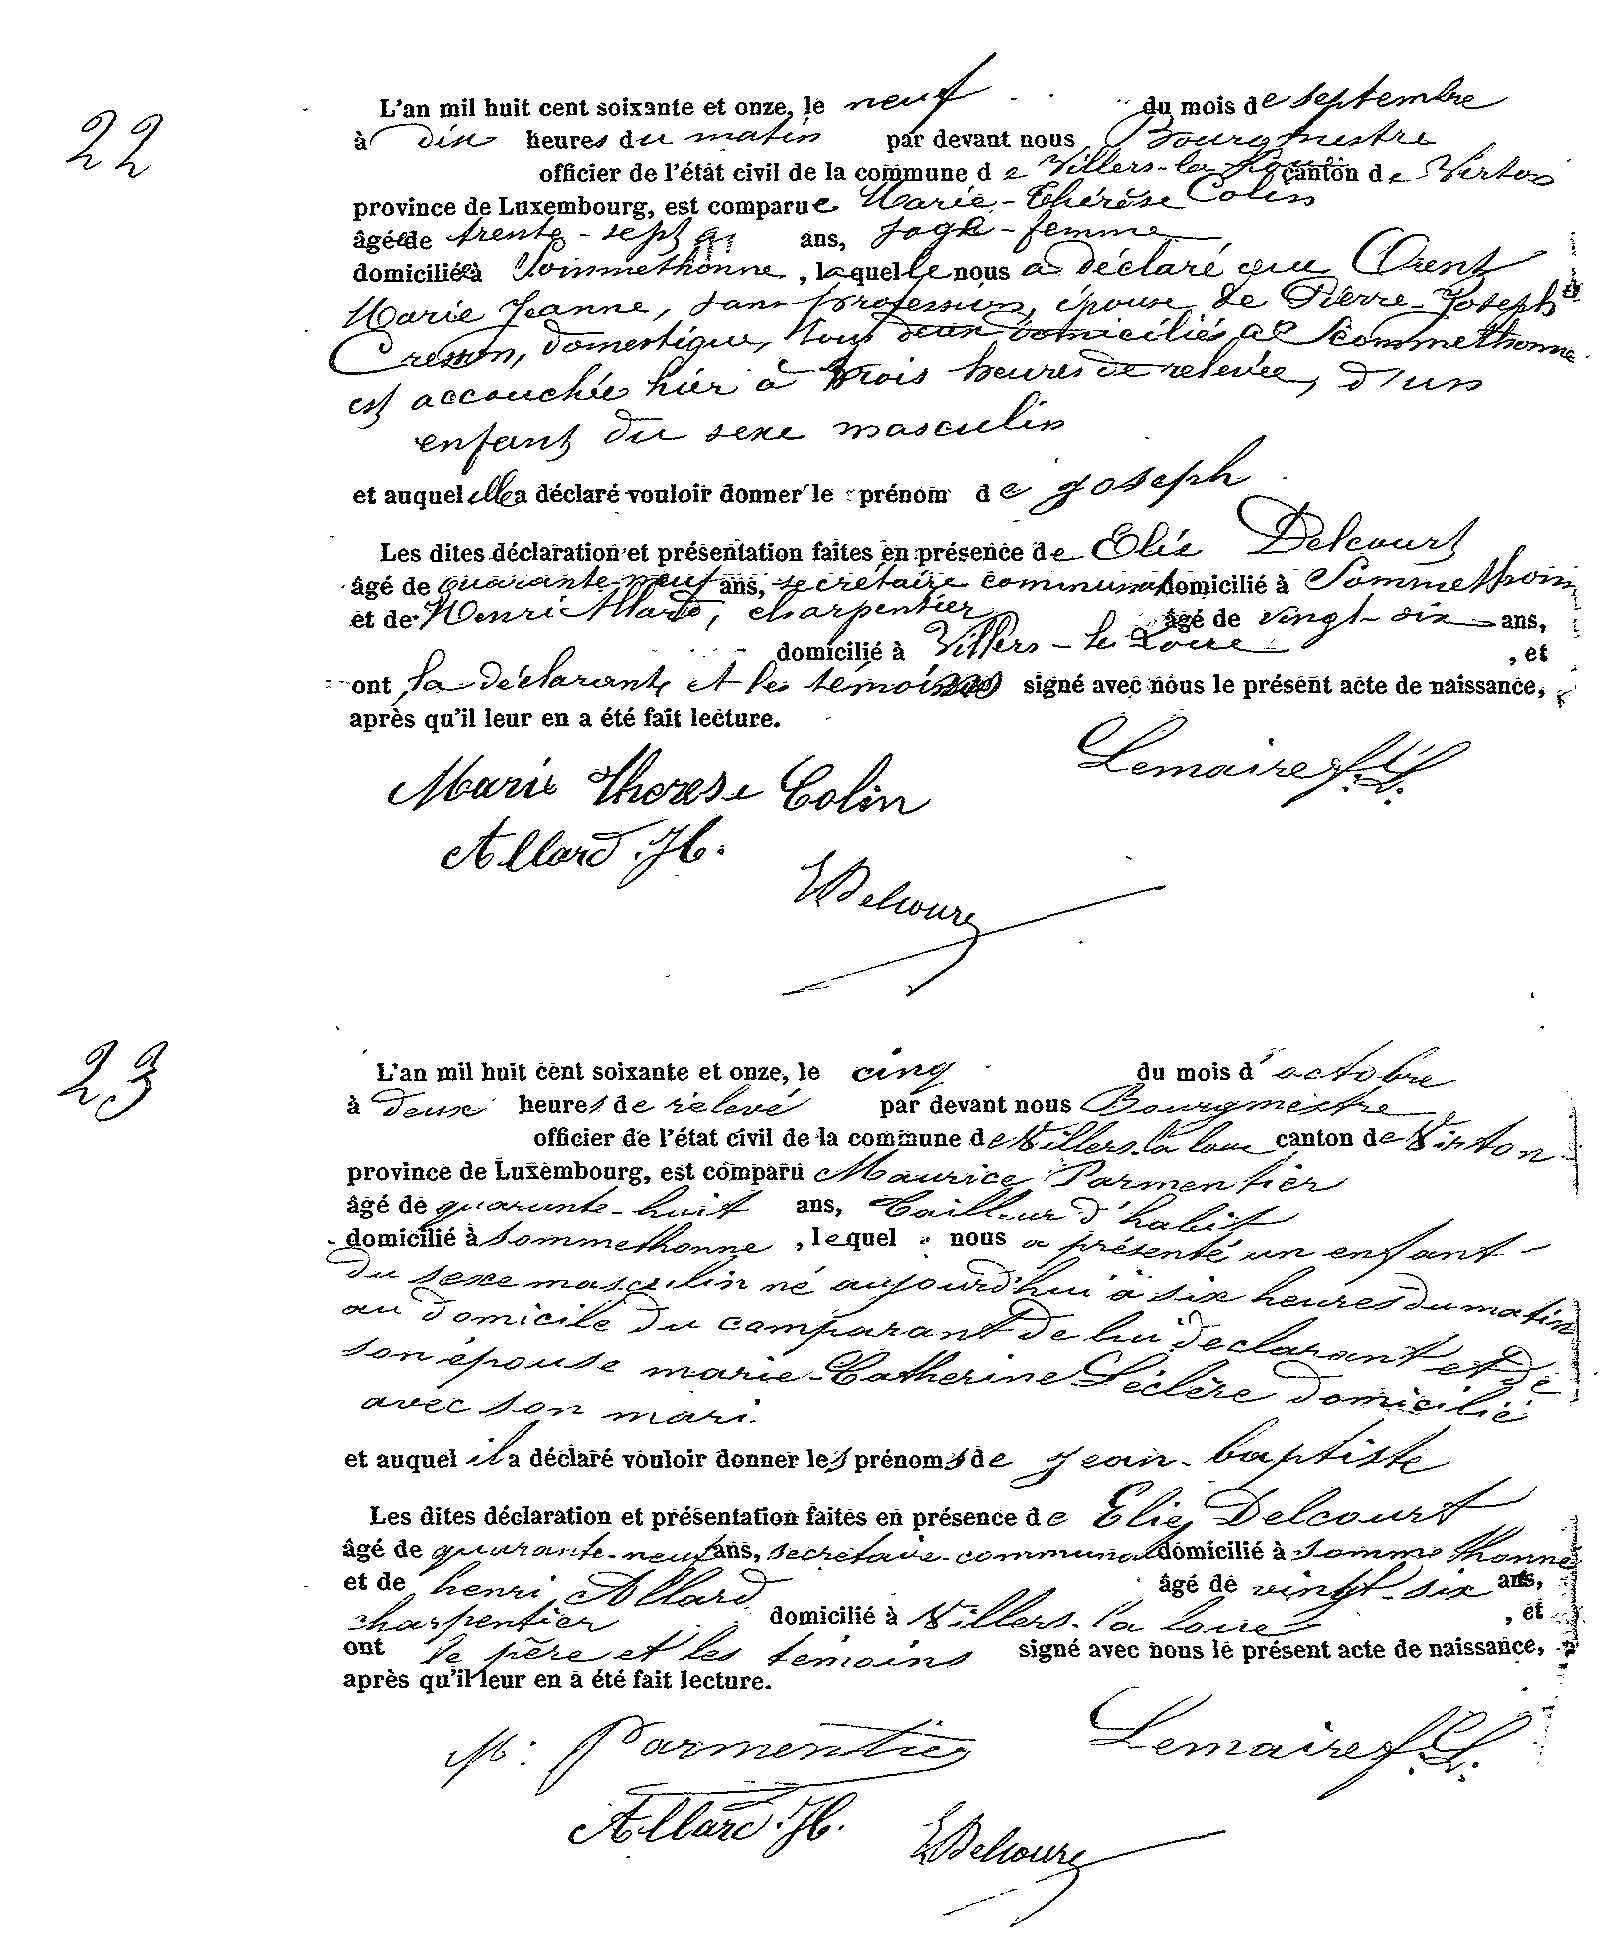 22
L'an mil huit cent soixante et onze, le neuf du mois de septembre
à dix heures du matin par devant nous Bourgmestre
officier de l'état civil de la commune de Villers-la-Loue canton de Virton
province de Luxembourg, est comparue Marie-Thérèse Colin
âgée de trente-sept ans, sage-femme
domiciliée à Sommethonne, laquelle nous a déclaré que
Marie Jeanne, sans profession, épouse de Pierre-Joseph
Cresson, domestique, tous deux domiciliés à Sommethonne
est accouchée hier à trois heures de relevée, d'un
enfant du sexe masculin
et auquel elle a déclaré vouloir donner le prénom de Joseph
Les dites déclaration et présentation faites en présence de Elie Delcourt
âgé de quarante-neuf ans, secrétaire communal domicilié à Sommethonne
et de Henri Allard, charpentier âgé de vingt-six ans,
domicilié à Villers-la-Loue , et
ont la déclarante et les témoins signé avec nous le présent acte de naissance,
après qu'il leur en a été fait lecture.
Marie Therese Colin Lemaire f. L.
Allard. H.
EDelcourt
23
L'an mil huit cent soixante et onze, le cinq du mois d'octobre
à deux heures de relevé par devant nous Bourgmestre
officier de l'état civil de la commune de Villers-la loue canton de Virton
province de Luxembourg, est comparu Maurice Parmentier
âgé de quarante-huit ans, tailleur d'habit
domicilié à Sommethonne , lequel nous a présenté un enfant
du sexe masculin né aujourd'hui à six heures du matin
au domicile du comparant de lui déclarant et de
son épouse marie-Catherine Léclère domicilié
avec son mari.
et auquel il a déclaré vouloir donner les prénoms de jean-baptiste
Les dites déclaration et présentation faites en présence de Elie Delcourt
âgé de quarante-neuf ans, secretaire-communal domicilié à Sommethonne
et de henri Allard âgé de vingt-six ans,
charpentier domicilié à Villers-la loue , et
ont le père et les témoins signé avec nous le présent acte de naissance,
après qu'il leur en a été fait lecture.
M. Parmentier Lemaire f. L.
Allard. H.
EDelcourt